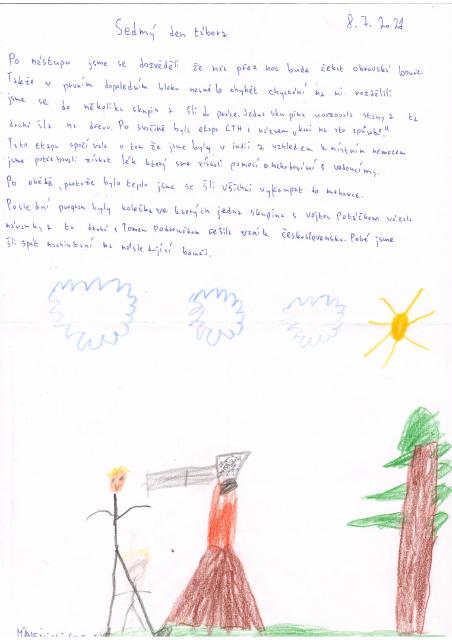 8.7.2021
Sedmý den tábora
Po nástupu jsme se dozvěděli že nás přes noc bude čekat obrovská bouře.
Takže v prvním dopoledním bloku nesmělo chybět chystání na ni. rozdělili
jsme se do několika skupin a šli do práce. Jedna skupina uvazovala stany a ta
druhá šla na dřevo. Po svačině byla etapa CTH s názvem „
Tato etapa spočívala v tom že jsme byly v indii a vzhledem k místním nemocem
jsme potřebovali získat lék který sme získali pomocí obchodování s vedoucímy.
Po obědě, protože bylo teplo jsme se šli všichni vykoupat do
Poslední program byly kolečka ve kterých jedna skupina s Vojtou Potáčkem vázala
náramky a ta druhá s Tomem řešila vznik československa. Poté jsme
šli spát nachistaní na následující bouři.